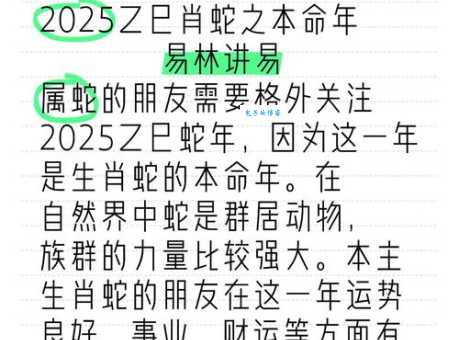 2025乙巳肖蛇之本命年
易林讲易
属蛇的朋友需要格外关注
2025乙巳蛇年，因为这一年
是生肖蛇的本命年。在
自然界中蛇是群居动物，
族群的力量比较强大。本主
生肖蛇的朋友在这一年运势
良好，事业、财运等方面有